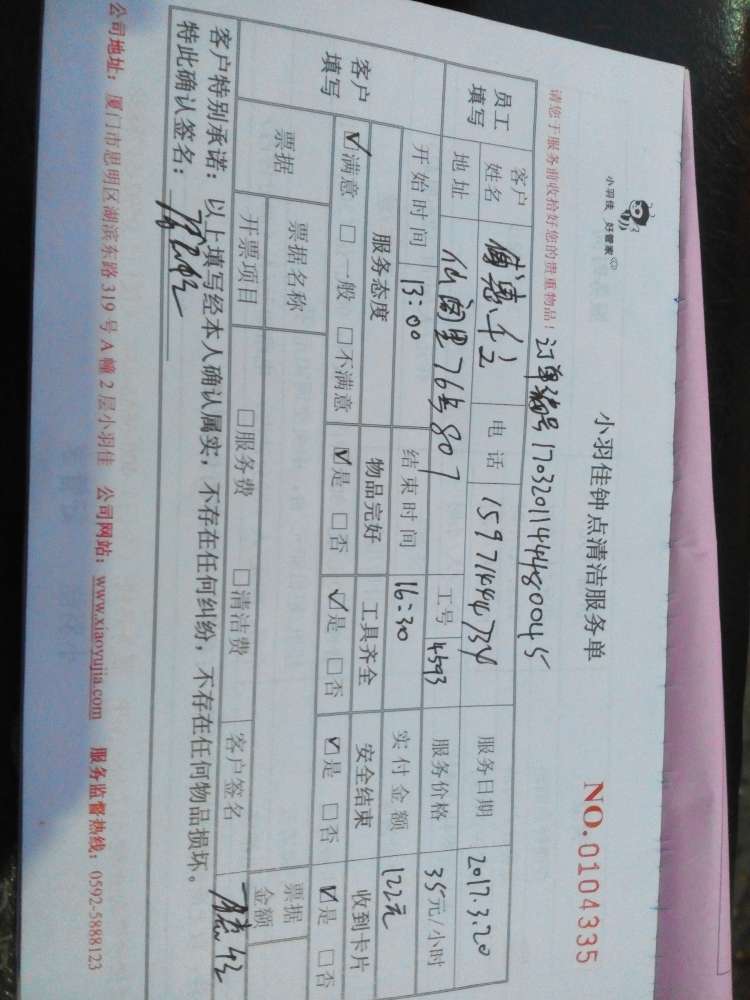 小羽佳 好管家
小羽佳钟点清洁服务单
NO.0104335
请您于服务前收拾好您的贵重物品！ 订单编号 1703201144480045
员工填写 客户姓名 电话 15971444734 服务日期 2017.3.20
地址 仙阁里76号807 工号 4593 服务价格 35元/小时
开始时间 13:00 结束时间 16:30 实付金额 122元
客户填写 服务态度 物品完好 工具齐全 安全结束 收到卡片
☑满意 □一般 □不满意 ☑是 □否 ☑是 □否 ☑是 □否 ☑是 □否
票据 票据名称 票据金额
开票项目 □服务费 □清洁费 客户签名
客户特别承诺：以上填写经本人确认属实，不存在任何纠纷，不存在任何物品损坏。
特此确认签名：
公司地址：厦门市思明区湖滨东路319号A幢2层小羽佳 公司网站：www.xiaoyujia.com 服务监督热线：0592-5888123